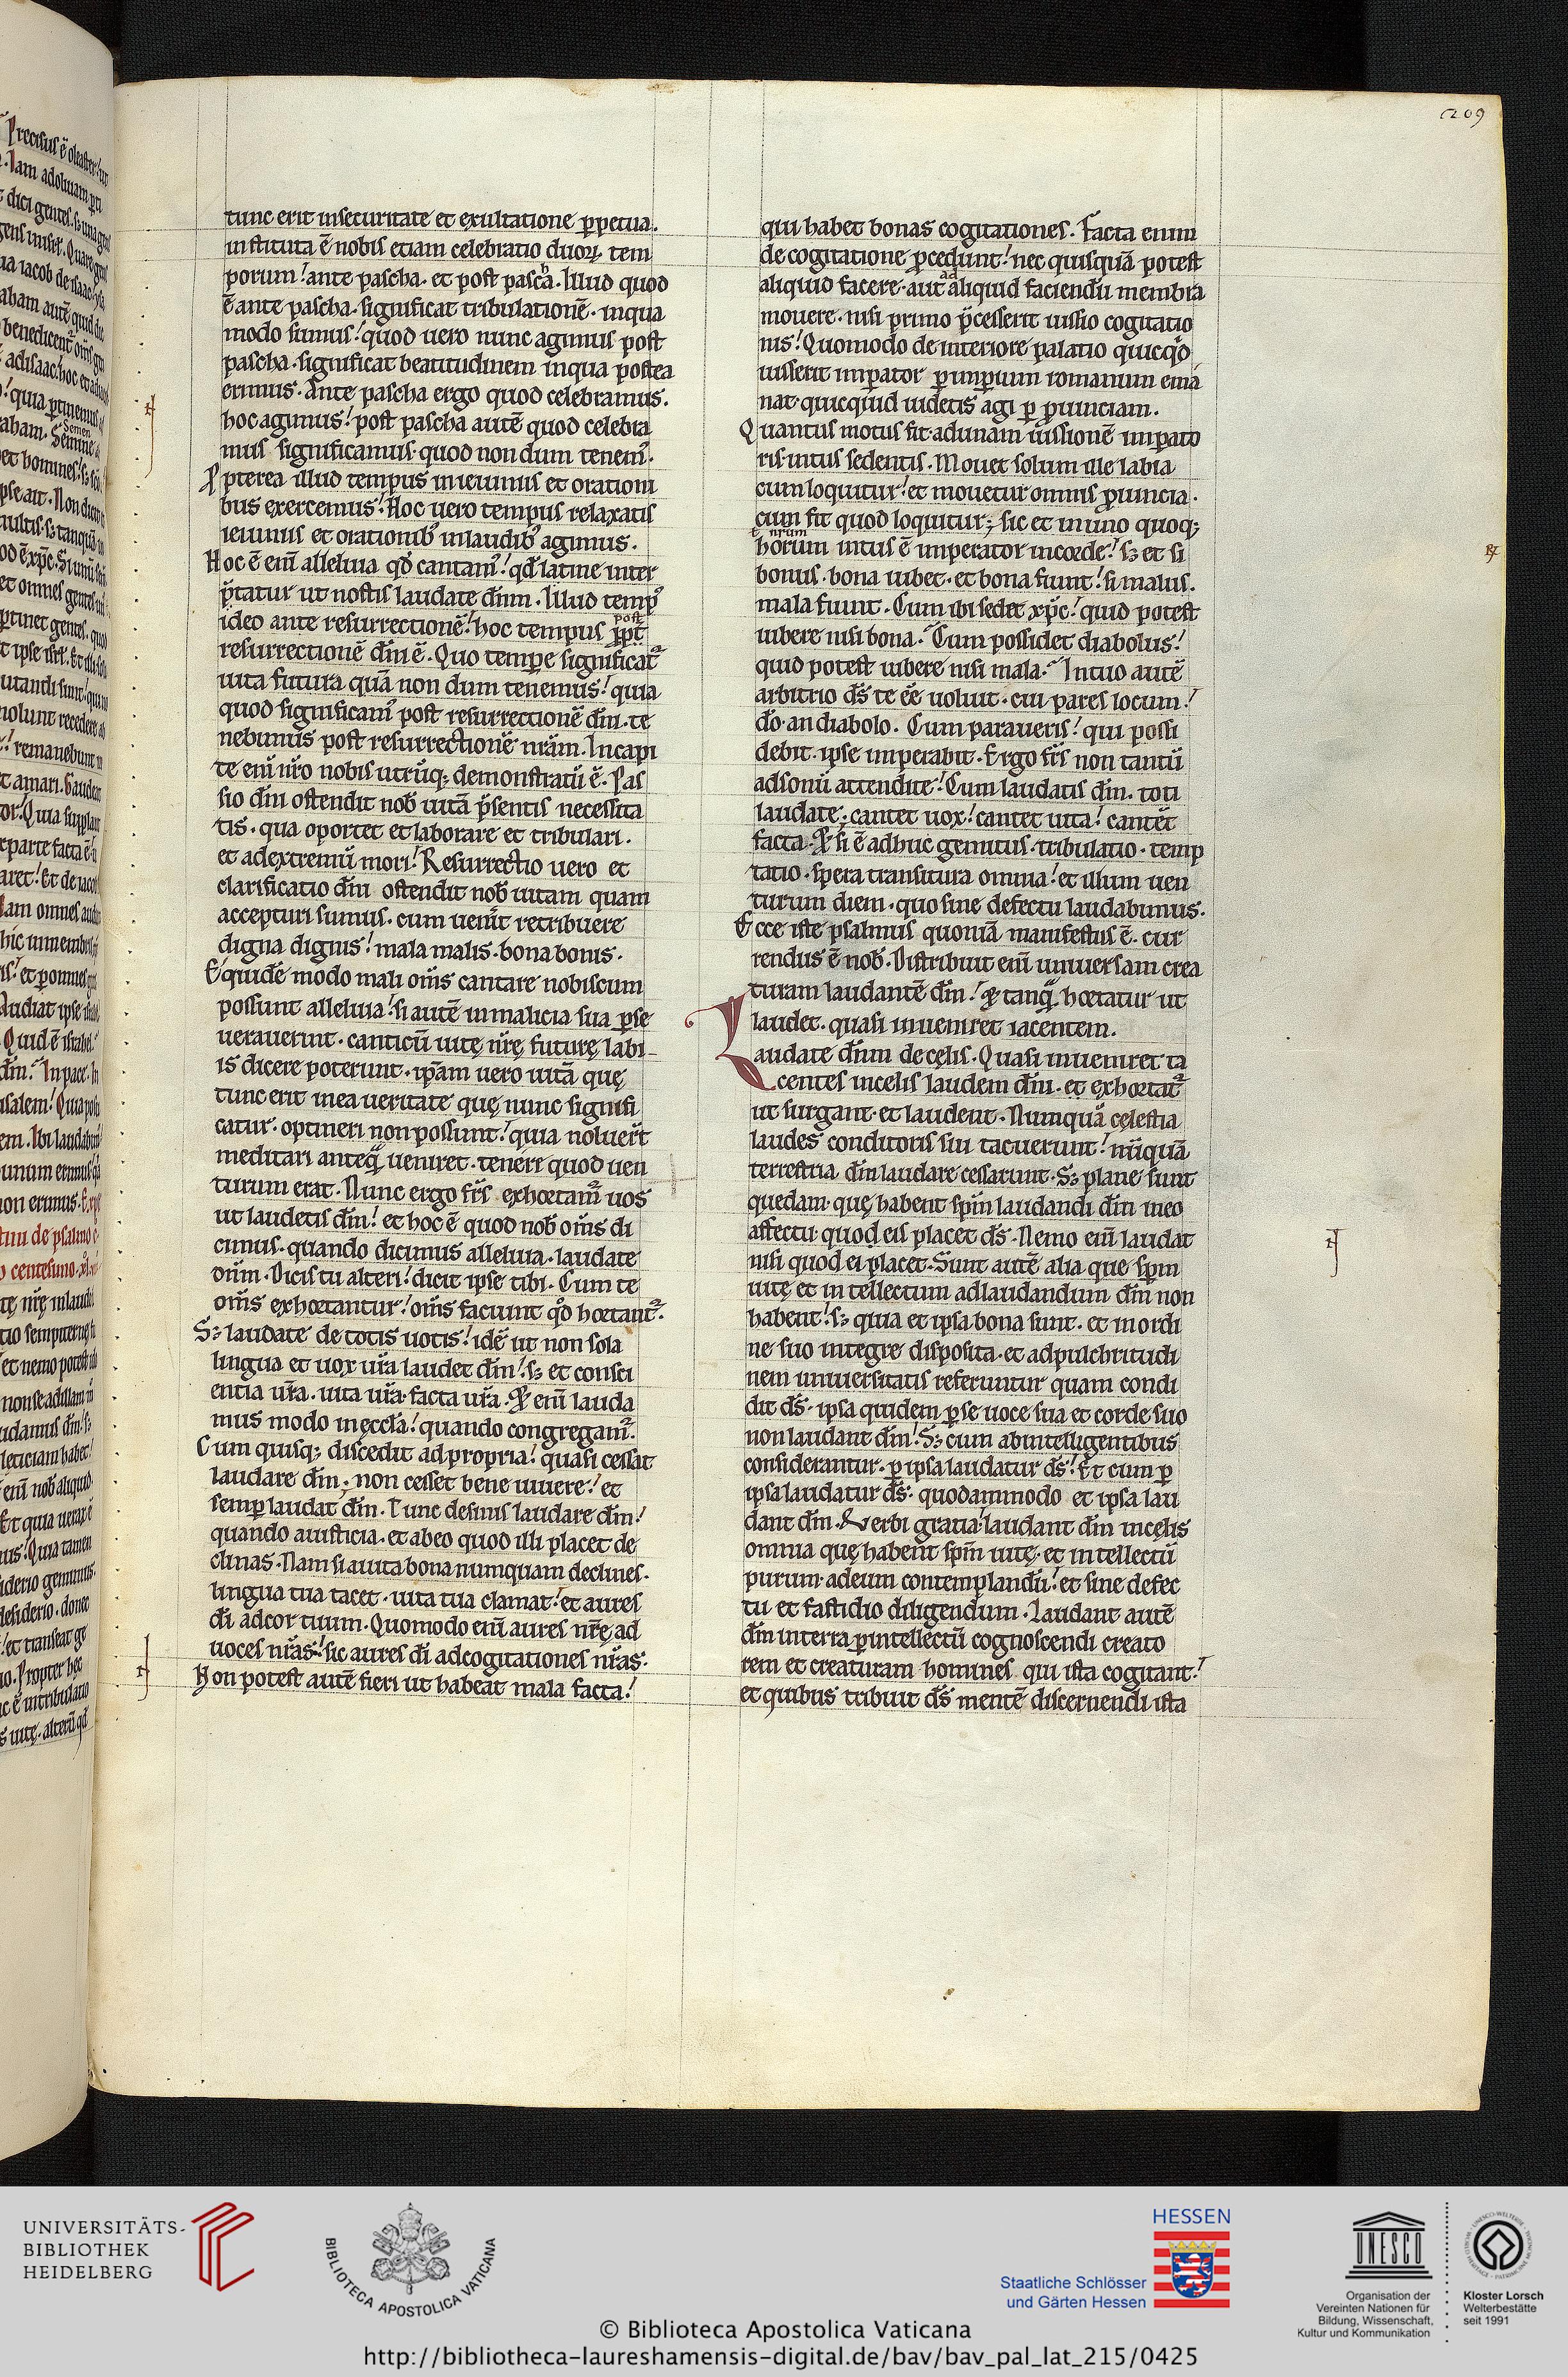 209
tunc erit insecuritate et exultatione ꝑpetua.
instituta ē nobis etiam celebratio duoꝝ tem
porum! ante pascha. et post pasca. Illud quod
ē ante pascha. significat tribulationē. inqua
modo sumus! quod uero nunc agimus post
pascha. significat beatitudinem inqua postea
erimus. Ante pascha ergo quod celebramus.
hoc agimus! post pascha autē quod celebra
mus significamus. quod non dum tenem᷒.
Ꝓpterea illud tempus inieiuniis et orationi
bus exercemus! Hoc uero tempus relaxatis
ieiuniis et orationib᷒ inlaudib᷒ agimus.
Hoc ē eni᷒ alleluia qd̄ cantam᷒! qd̄ latine inter
p̄tatur ut nostis laudate dn̄m. Illud temp᷒
ideo ante resurrectionē! hoc tempus ꝓpt̄ post
resurrectionē dn̄i ē. Quo temꝑe significat᷑
uita futura quā non dum tenemus! quia
quod significam᷒ post resurrectionē dn̄i. te
nebimus post resurrectionē nr̄am. Incapi
te eni᷒ nr̄o nobis utrūq; demonstratū ē. Pas
sio dn̄i ostendit nob᷒ uitā p̄sentis necessita
tis. qua oportet et laborare et tribulari.
et adextremū mori! Resurrectio uero et
clarificatio dn̄i ostendit nob᷒ uitam quam
accepturi sumus. cum uenīt retribuere
digna dignis! mala malis. bona bonis.
Equidē modo mali om̄s cantare nobiscum
possunt alleluia! si autē inmalicia sua ꝑse
uerauerint. canticū uitę nr̄ę futurę labi
is dicere poterunt. ip̄am uero uitā quę
tunc erit inea ueritate quę nunc signifi
catur. optineri non possunt! quia noluer̄t
meditari anteq̄ ueniret. tenere quod uen
turum erat. Nunc ergo fr̄s exhortam᷑ uos
ut laudetis dm̄! et hoc ē quod nob᷒ om̄s di
cimus. quando dicimus alleluia. laudate
dn̄m. Dicis tu alteri! dicit ipse tibi. Cum te
om̄s exhortantur! om̄s faciunt qd̄ hortant᷑.
S; laudate de totis uotis! idē ut non sola
lingua et uox ur̄a laudet dm̄! s; et consci
entia ur̄a. uita ur̄a. facta ur̄a. & eni᷒ lauda
mus modo inęccl̄a! quando congregam᷑.
Cum quisq; discedit adpropria! quasi cessat
laudare dm̄. non cesset bene uiuere! et
semꝑ laudat dm̄. Tunc desinis laudare dm̄!
quando aiusticia. et abeo quod illi placet de
clinas. Nam si auita bona numquam declines.
lingua tua tacet. uita tua clamat! et aures
di᷒ adcor tuum. Quomodo eni᷒ aures nr̄ę ad
uoces nr̄as! sic aures di᷒ adcogitationes nr̄as.
Non potest autē fieri ut habeat mala facta!
qui habet bonas cogitationes. Facta enim
de cogitatione ꝓcedunt! nec quisquā potest
aliquid facere. aut ad aliquid faciendū membra
mouere. nisi primo p̄cesserit iussio cogitatio
nis! Quomodo de interiore palatio quicqd̄
iusserit imꝑator ꝑ imꝑium romanum emā
nat. quicquid uidetis agi ꝑ ꝓuinciam.
Quantus motus fit. adunam iussionē imꝑato
ris. intus sedentis. Mouet solum ille labia
cum loquitur! et mouetur omnis ꝓuincia.
cum fit quod loquitur; sic et in uno quoq;
horum nr̄um intus ē imperator incorde! s; et si
bonus. bona iubet. et bona fiunt! si malus.
mala fiunt. Cum ibi sedet xp̄c! quid potest
iubere nisi bona. Cum possidet diabolus!
quid potest iubere nisi mala. Intuo autē
arbitrio ds̄ te eē uoluit. cui pares locum!
do᷒. an diabolo. Cum paraueris! qui possi
debit. ipse imperabit. Ergo fr̄s non tantū
adsonū attendite! Cum laudatis dm̄. toti
laudate. cantet uox! cantet uita! cantēt
facta. & si ē adhuc gemitus. tribulatio. temp
tatio. spera transitura omnia! et illum uen
turum diem. quo sine defectu laudabimus.
Ecce iste psalmus quoniā manifestus ē. cur
rendus ē nob᷒. Distribuit eni᷒ uniuersam crea
turam laudantē dm̄! & tanq̄ hortatur ut
laudet. quasi inueniret iacentem.
Laudate dn̄m decęlis. Quasi inueniret ta
centes incelis laudem dn̄i. et exhortat᷑
ut surgant. et laudent. Numquā cęlestia
laudes conditoris sui tacuerunt! nūquā
terrestria dm̄ laudare cessarunt. S; plane sunt
quedam. quę habent sp̄m laudandi dm̄ ineo
affectu. quod eis placet ds̄. Nemo eni᷒ laudat
nisi quod ei placet. Sunt autē alia que sp̄m
uitę et intellectum adlaudandum dm̄ non
habent! s; quia et ipsa bona sunt. et inordi
ne suo integre disposita. et adpulchritudi
nem uniuersitatis referuntur quam condi
dit ds̄. ipsa quidem ꝑse uoce sua et corde suo
non laudant dm̄! S; cum abintelligentibus
considerantur. ꝑ ipsa laudatur ds̄! Et cum ꝑ
ipsa laudatur ds̄. quodammodo et ipsa lau
dant dm̄. Verbi gratia! laudant dm̄ incęlis
omnia quę habent sp̄m uitę. et intellectū
purum. adeum contemplandū! et sine defec
tu et fastidio diligendum. Laudant autē
dm̄ interra ꝑ intellectū cognoscendi creato
rem et creaturam homines qui ista cogitant!
et quibus tribuit ds̄ mentē discernendi ista
UNIVERSITÄTS-
BIBLIOTHEK
HEIDELBERG
BIBLIOTECA APOSTOLICA VATICANA
HESSEN
Staatliche Schlösser
und Gärten Hessen
UNESCO
Organisation der
Vereinten Nationen für
Bildung, Wissenschaft,
Kultur und Kommunikation
Kloster Lorsch
Welterbestätte
seit 1991
© Biblioteca Apostolica Vaticana
http://bibliotheca-laureshamensis-digital.de/bav/bav_pal_lat_215/0425